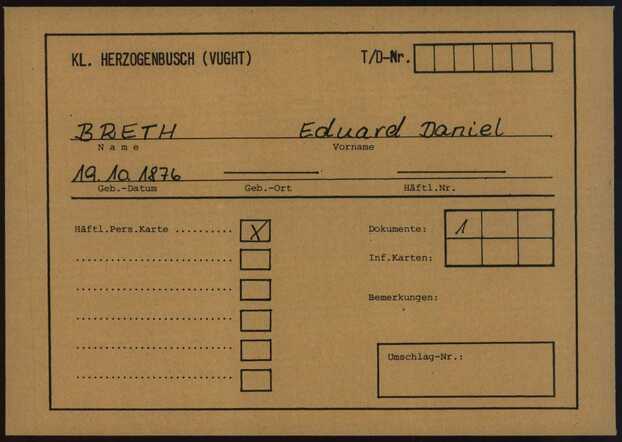 KL. HERZOGENBUSCH (VUGHT) T/D-Nr.
BRETH Eduard Daniel
Name Vorname
19.10.1876
Geb.-Datum Geb.-Ort Häftl.Nr.
Häftl.Pers.Karte .......... X Dokumente: 1
Inf.Karten:
Bemerkungen:
Umschlag-Nr.: